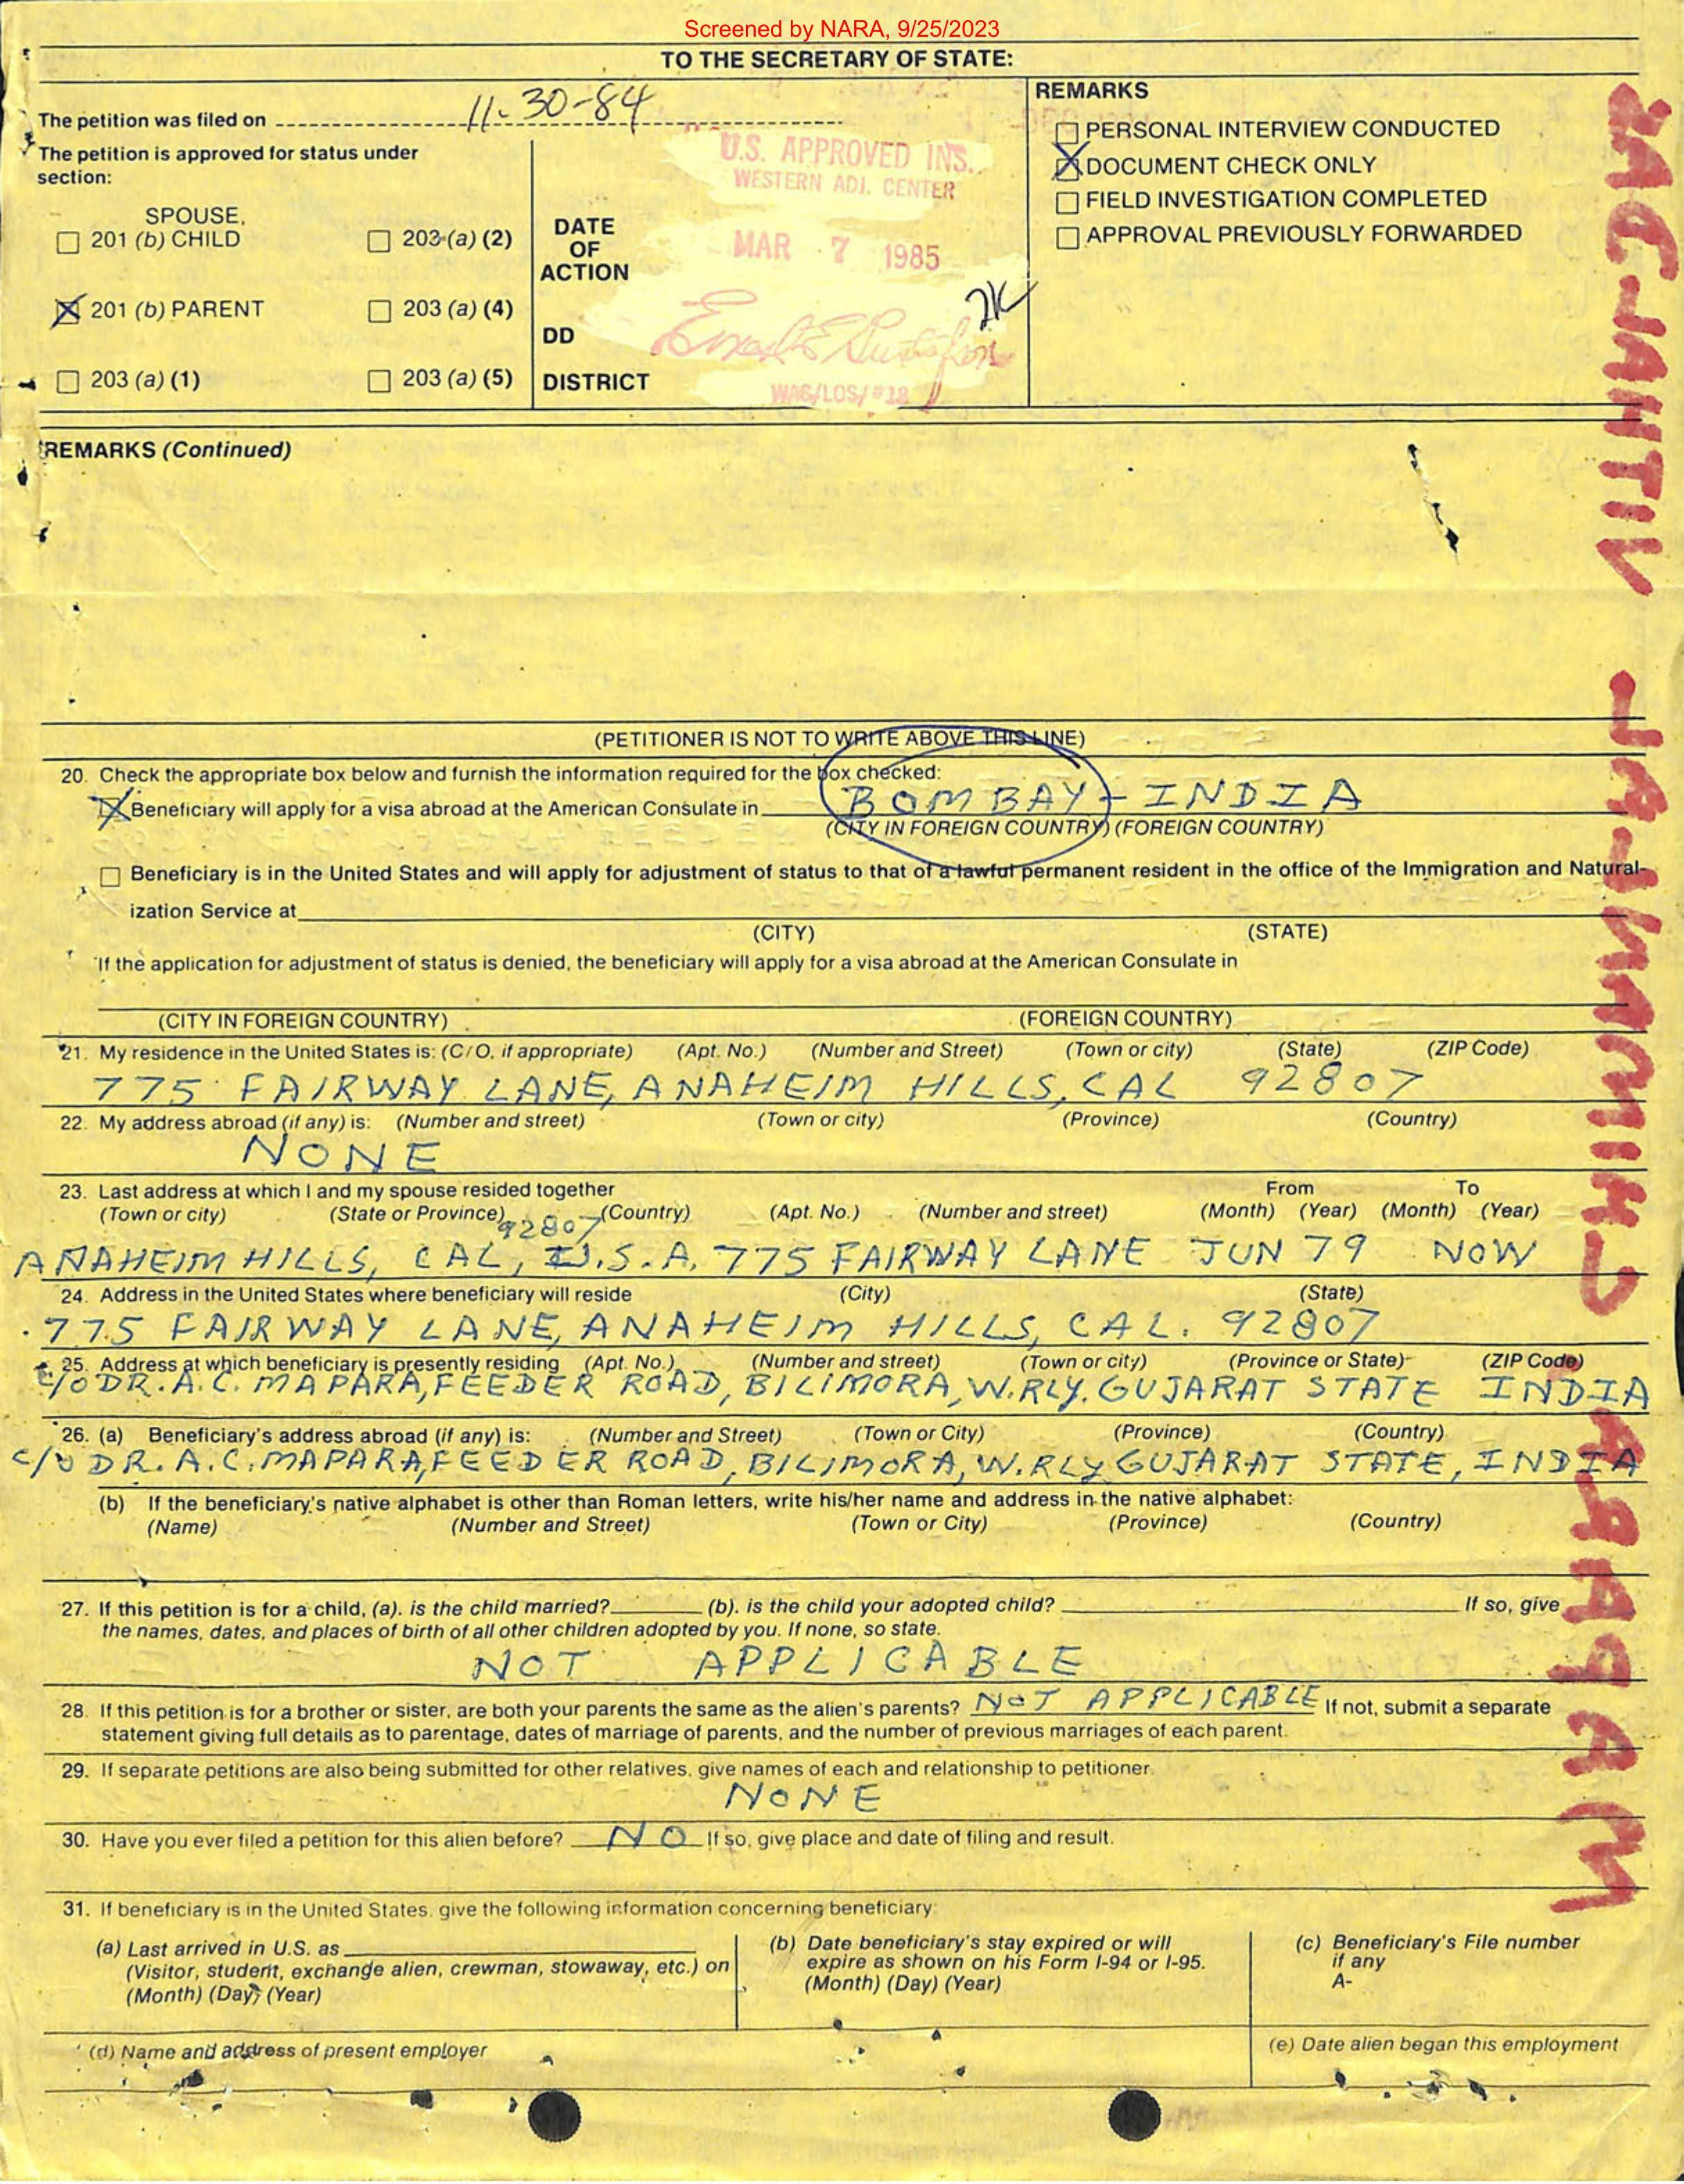 Screened by NARA, 9/25/2023
TO THE SECRETARY OF STATE:
The petition was filed on 11-30-84
The petition is approved for status under
section:
SPOUSE,
201 (b) CHILD
203 (a) (2)
201 (b) PARENT
203 (a) (4)
203 (a) (1)
203 (a) (5)
DATE
OF
ACTION
DD
DISTRICT
U.S. APPROVED INS.
WESTERN ADJ. CENTER
MAR 7 1985
REMARKS
PERSONAL INTERVIEW CONDUCTED
DOCUMENT CHECK ONLY
FIELD INVESTIGATION COMPLETED
APPROVAL PREVIOUSLY FORWARDED
REMARKS (Continued)
(PETITIONER IS NOT TO WRITE ABOVE THIS LINE)
20. Check the appropriate box below and furnish the information required for the box checked:
Beneficiary will apply for a visa abroad at the American Consulate in BOMBAY - INDIA
(CITY IN FOREIGN COUNTRY) (FOREIGN COUNTRY)
Beneficiary is in the United States and will apply for adjustment of status to that of a lawful permanent resident in the office of the Immigration and Natural-
ization Service at
(CITY) (STATE)
If the application for adjustment of status is denied, the beneficiary will apply for a visa abroad at the American Consulate in
(CITY IN FOREIGN COUNTRY) (FOREIGN COUNTRY)
21. My residence in the United States is: (C/O, if appropriate) (Apt. No.) (Number and Street) (Town or city) (State) (ZIP Code)
775 FAIRWAY LANE, ANAHEIM HILLS, CAL 92807
22. My address abroad (if any) is: (Number and street) (Town or city) (Province) (Country)
NONE
23. Last address at which I and my spouse resided together From To
(Town or city) (State or Province) (Country) (Apt. No.) (Number and street) (Month) (Year) (Month) (Year)
92807
ANAHEIM HILLS, CAL, U.S.A. 775 FAIRWAY LANE JUN 79 NOW
24. Address in the United States where beneficiary will reside (City) (State)
775 FAIRWAY LANE, ANAHEIM HILLS, CAL. 92807
25. Address at which beneficiary is presently residing (Apt. No.) (Number and street) (Town or city) (Province or State) (ZIP Code)
C/O DR. A. C. MAPARA, FEEDER ROAD, BILIMORA, W.RLY. GUJARAT STATE INDIA
26. (a) Beneficiary's address abroad (if any) is: (Number and Street) (Town or City) (Province) (Country)
C/O DR. A. C. MAPARA, FEEDER ROAD, BILIMORA, W.RLY GUJARAT STATE, INDIA
(b) If the beneficiary's native alphabet is other than Roman letters, write his/her name and address in the native alphabet:
(Name) (Number and Street) (Town or City) (Province) (Country)
27. If this petition is for a child, (a). is the child married? (b). is the child your adopted child? If so, give
the names, dates, and places of birth of all other children adopted by you. If none, so state.
NOT APPLICABLE
28. If this petition is for a brother or sister, are both your parents the same as the alien's parents? NOT APPLICABLE If not, submit a separate
statement giving full details as to parentage, dates of marriage of parents, and the number of previous marriages of each parent.
29. If separate petitions are also being submitted for other relatives, give names of each and relationship to petitioner.
NONE
30. Have you ever filed a petition for this alien before? NO If so, give place and date of filing and result.
31. If beneficiary is in the United States, give the following information concerning beneficiary:
(a) Last arrived in U.S. as
(Visitor, student, exchange alien, crewman, stowaway, etc.) on
(Month) (Day) (Year)
(b) Date beneficiary's stay expired or will
expire as shown on his Form I-94 or I-95.
(Month) (Day) (Year)
(c) Beneficiary's File number
if any
A-
(d) Name and address of present employer
(e) Date alien began this employment
MAPARA